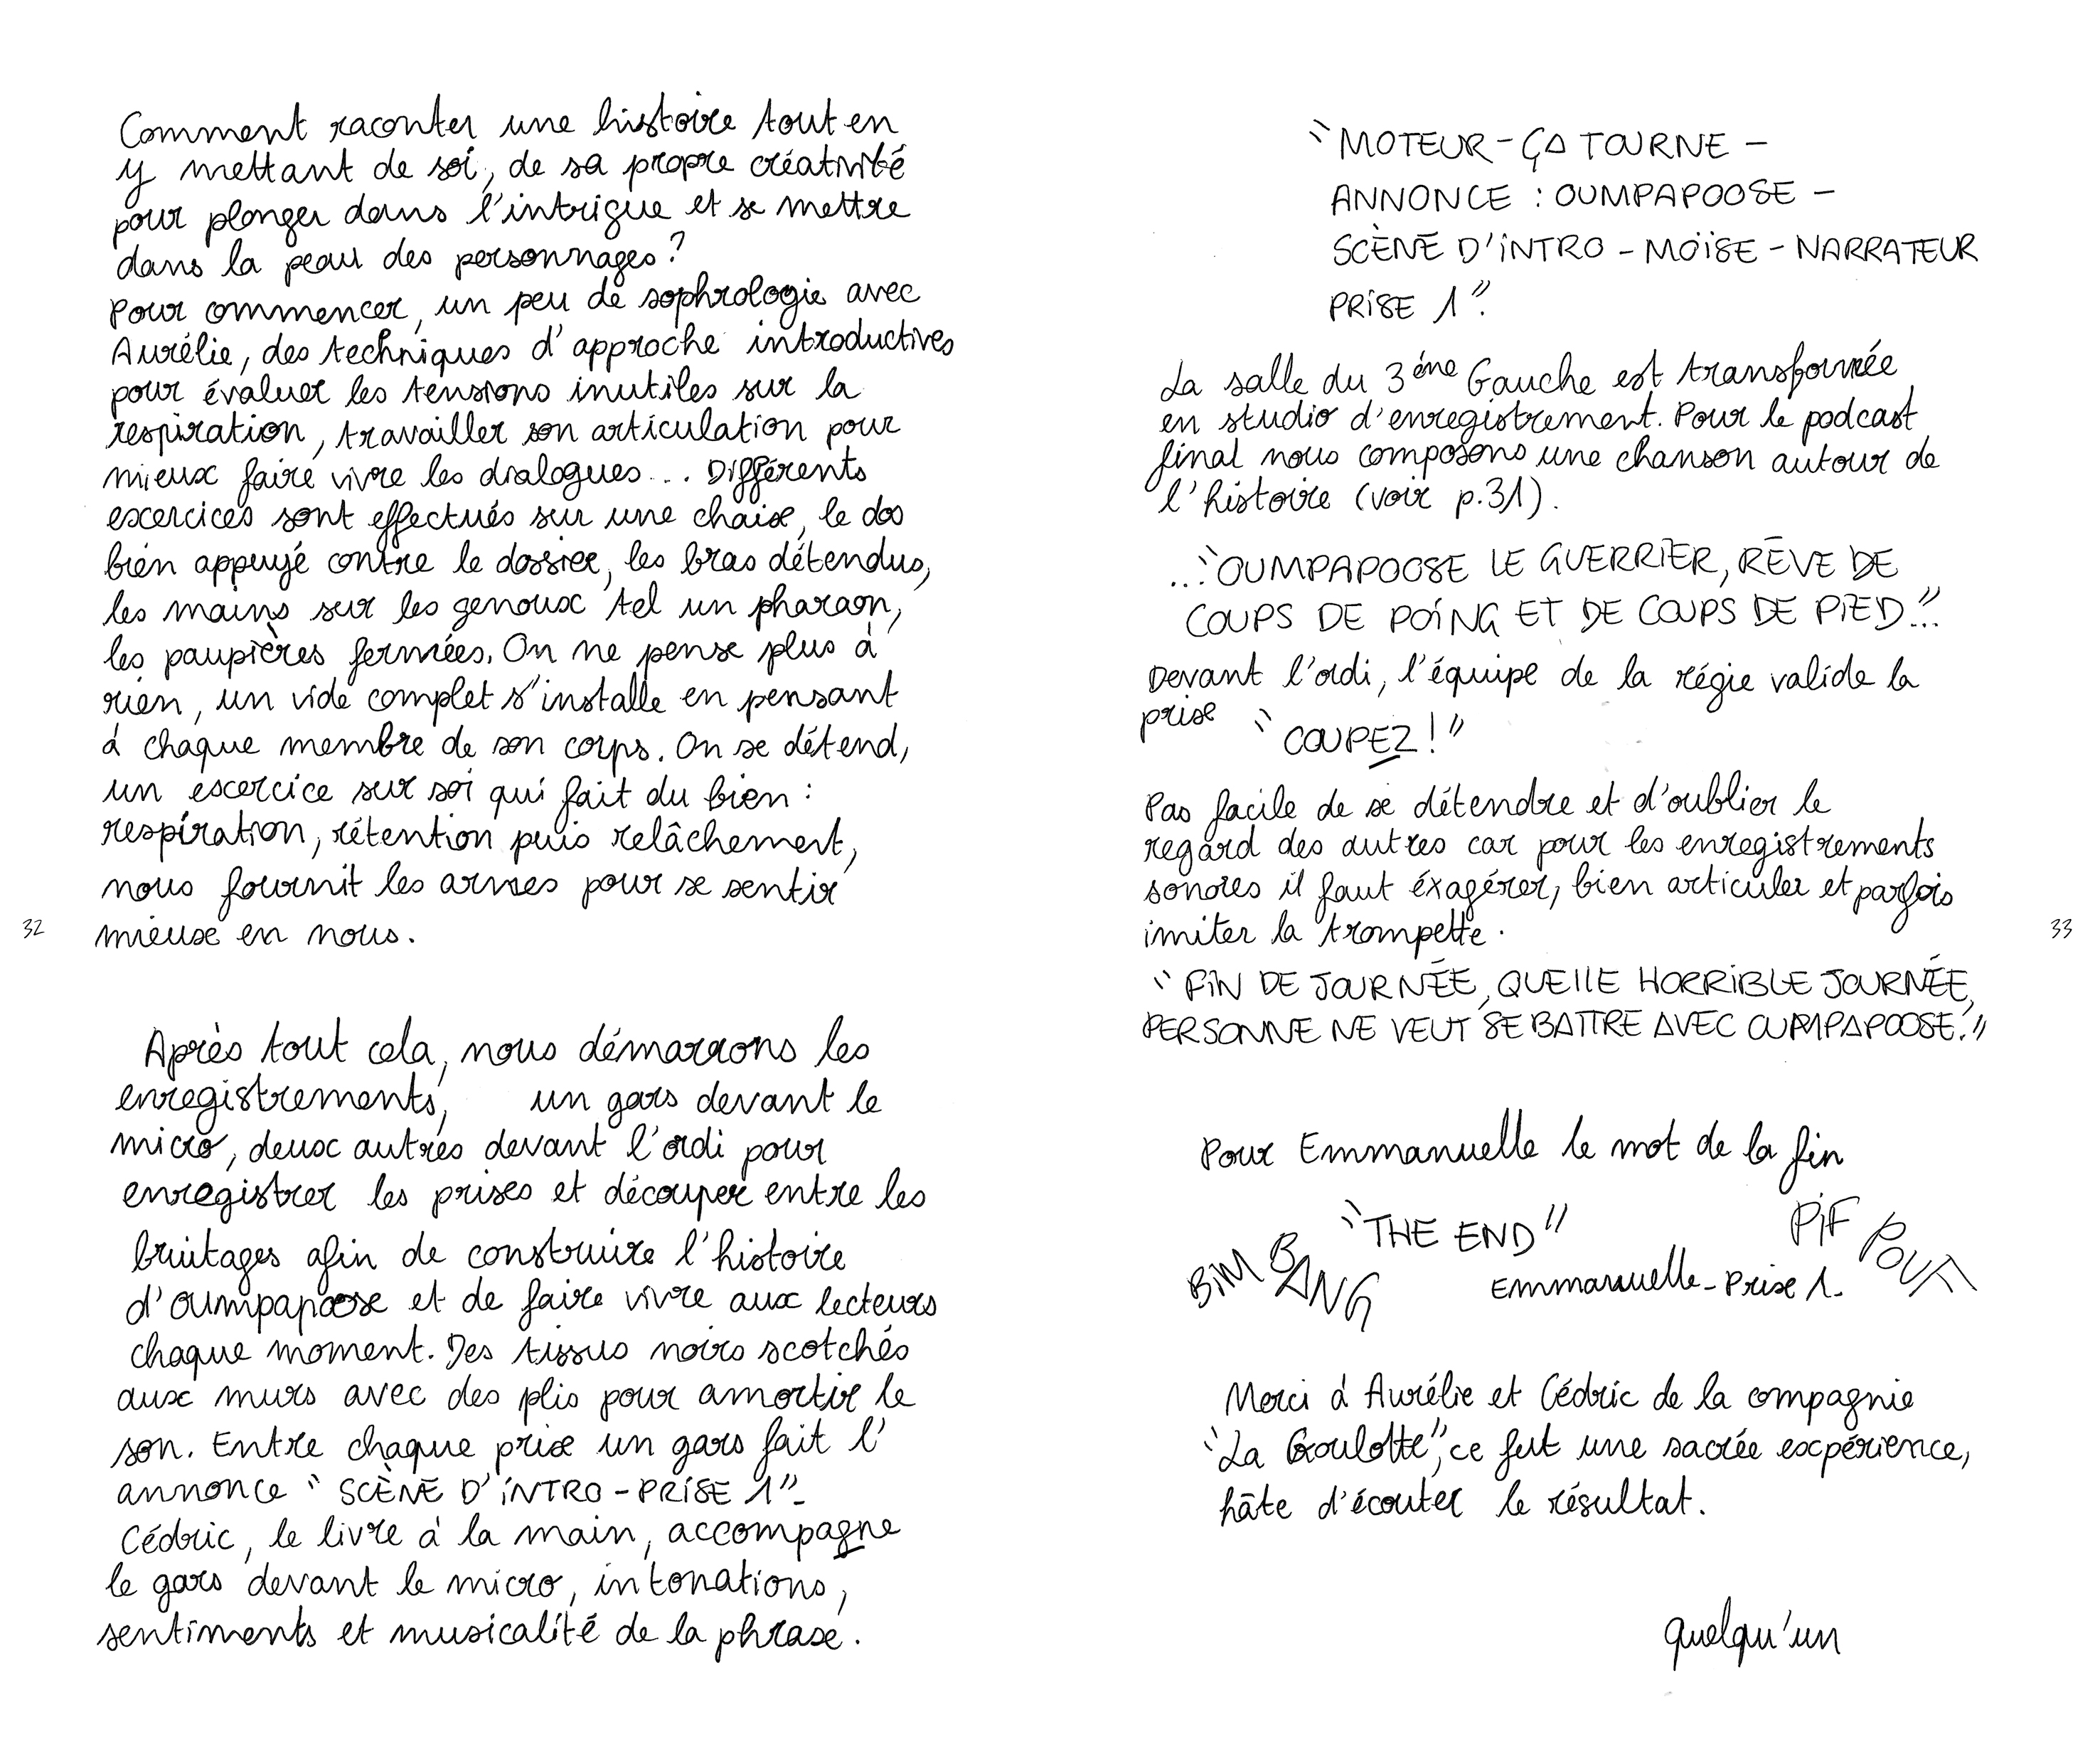 Comment raconter une histoire tout en
y mettant de soi, de sa propre créativité
pour plonger dans l'intrigue et se mettre
dans la peau des personnages ?
Pour commencer, un peu de sophrologie avec
Aurélie, des techniques d'approche introductives
pour évaluer les tensions inutiles sur la
respiration, travailler son articulation pour
mieux faire vivre les dialogues... Différents
excercices sont effectués sur une chaise, le dos
bien appuyé contre le dossier, les bras détendus,
les mains sur les genoux tel un pharaon,
les paupières fermées. On ne pense plus à
rien, un vide complet s'installe en pensant
à chaque membre de son corps. On se détend,
un excercice sur soi qui fait du bien :
respiration, rétention puis relâchement,
nous fournit les armes pour se sentir
mieux en nous.
32
Après tout cela, nous démarrons les
enregistrements, un gars devant le
micro, deux autres devant l'ordi pour
enregistrer les prises et découper entre les
bruitages afin de construire l'histoire
d'Oumpapoose et de faire vivre aux lecteurs
chaque moment. Des tissus noirs scotchés
aux murs avec des plis pour amortir le
son. Entre chaque prise un gars fait l'
annonce "SCÈNE D'INTRO - PRISE 1"-
Cédric, le livre à la main, accompagne
le gars devant le micro, intonations,
sentiments et musicalité de la phrase.
"MOTEUR - ÇA TOURNE -
ANNONCE : OUMPAPOOSE -
SCÈNE D'INTRO - MOÏSE - NARRATEUR
PRISE 1".
La salle du 3éme Gauche est transformée
en studio d'enregistrement. Pour le podcast
final nous composons une chanson autour de
l'histoire (voir p.31).
..."OUMPAPOOSE LE GUERRIER, RÊVE DE
COUPS DE POING ET DE COUPS DE PIED"...
Devant l'ordi, l'équipe de la régie valide la
prise "COUPEZ !"
Pas facile de se détendre et d'oublier le
regard des autres car pour les enregistrements
sonores il faut éxagérer, bien articuler et parfois
imiter la trompette.
"FIN DE JOURNÉE, QUELLE HORRIBLE JOURNÉE,
PERSONNE NE VEUT SE BATTRE AVEC OUMPAPOOSE."
33
Pour Emmanuelle le mot de la fin
"THE END"
BIM BANG
PIF POUF
Emmanuelle - Prise 1.
Merci à Aurélie et Cédric de la compagnie
"La Goulotte", ce fut une sacrée expérience,
hâte d'écouter le résultat.
quelqu'un